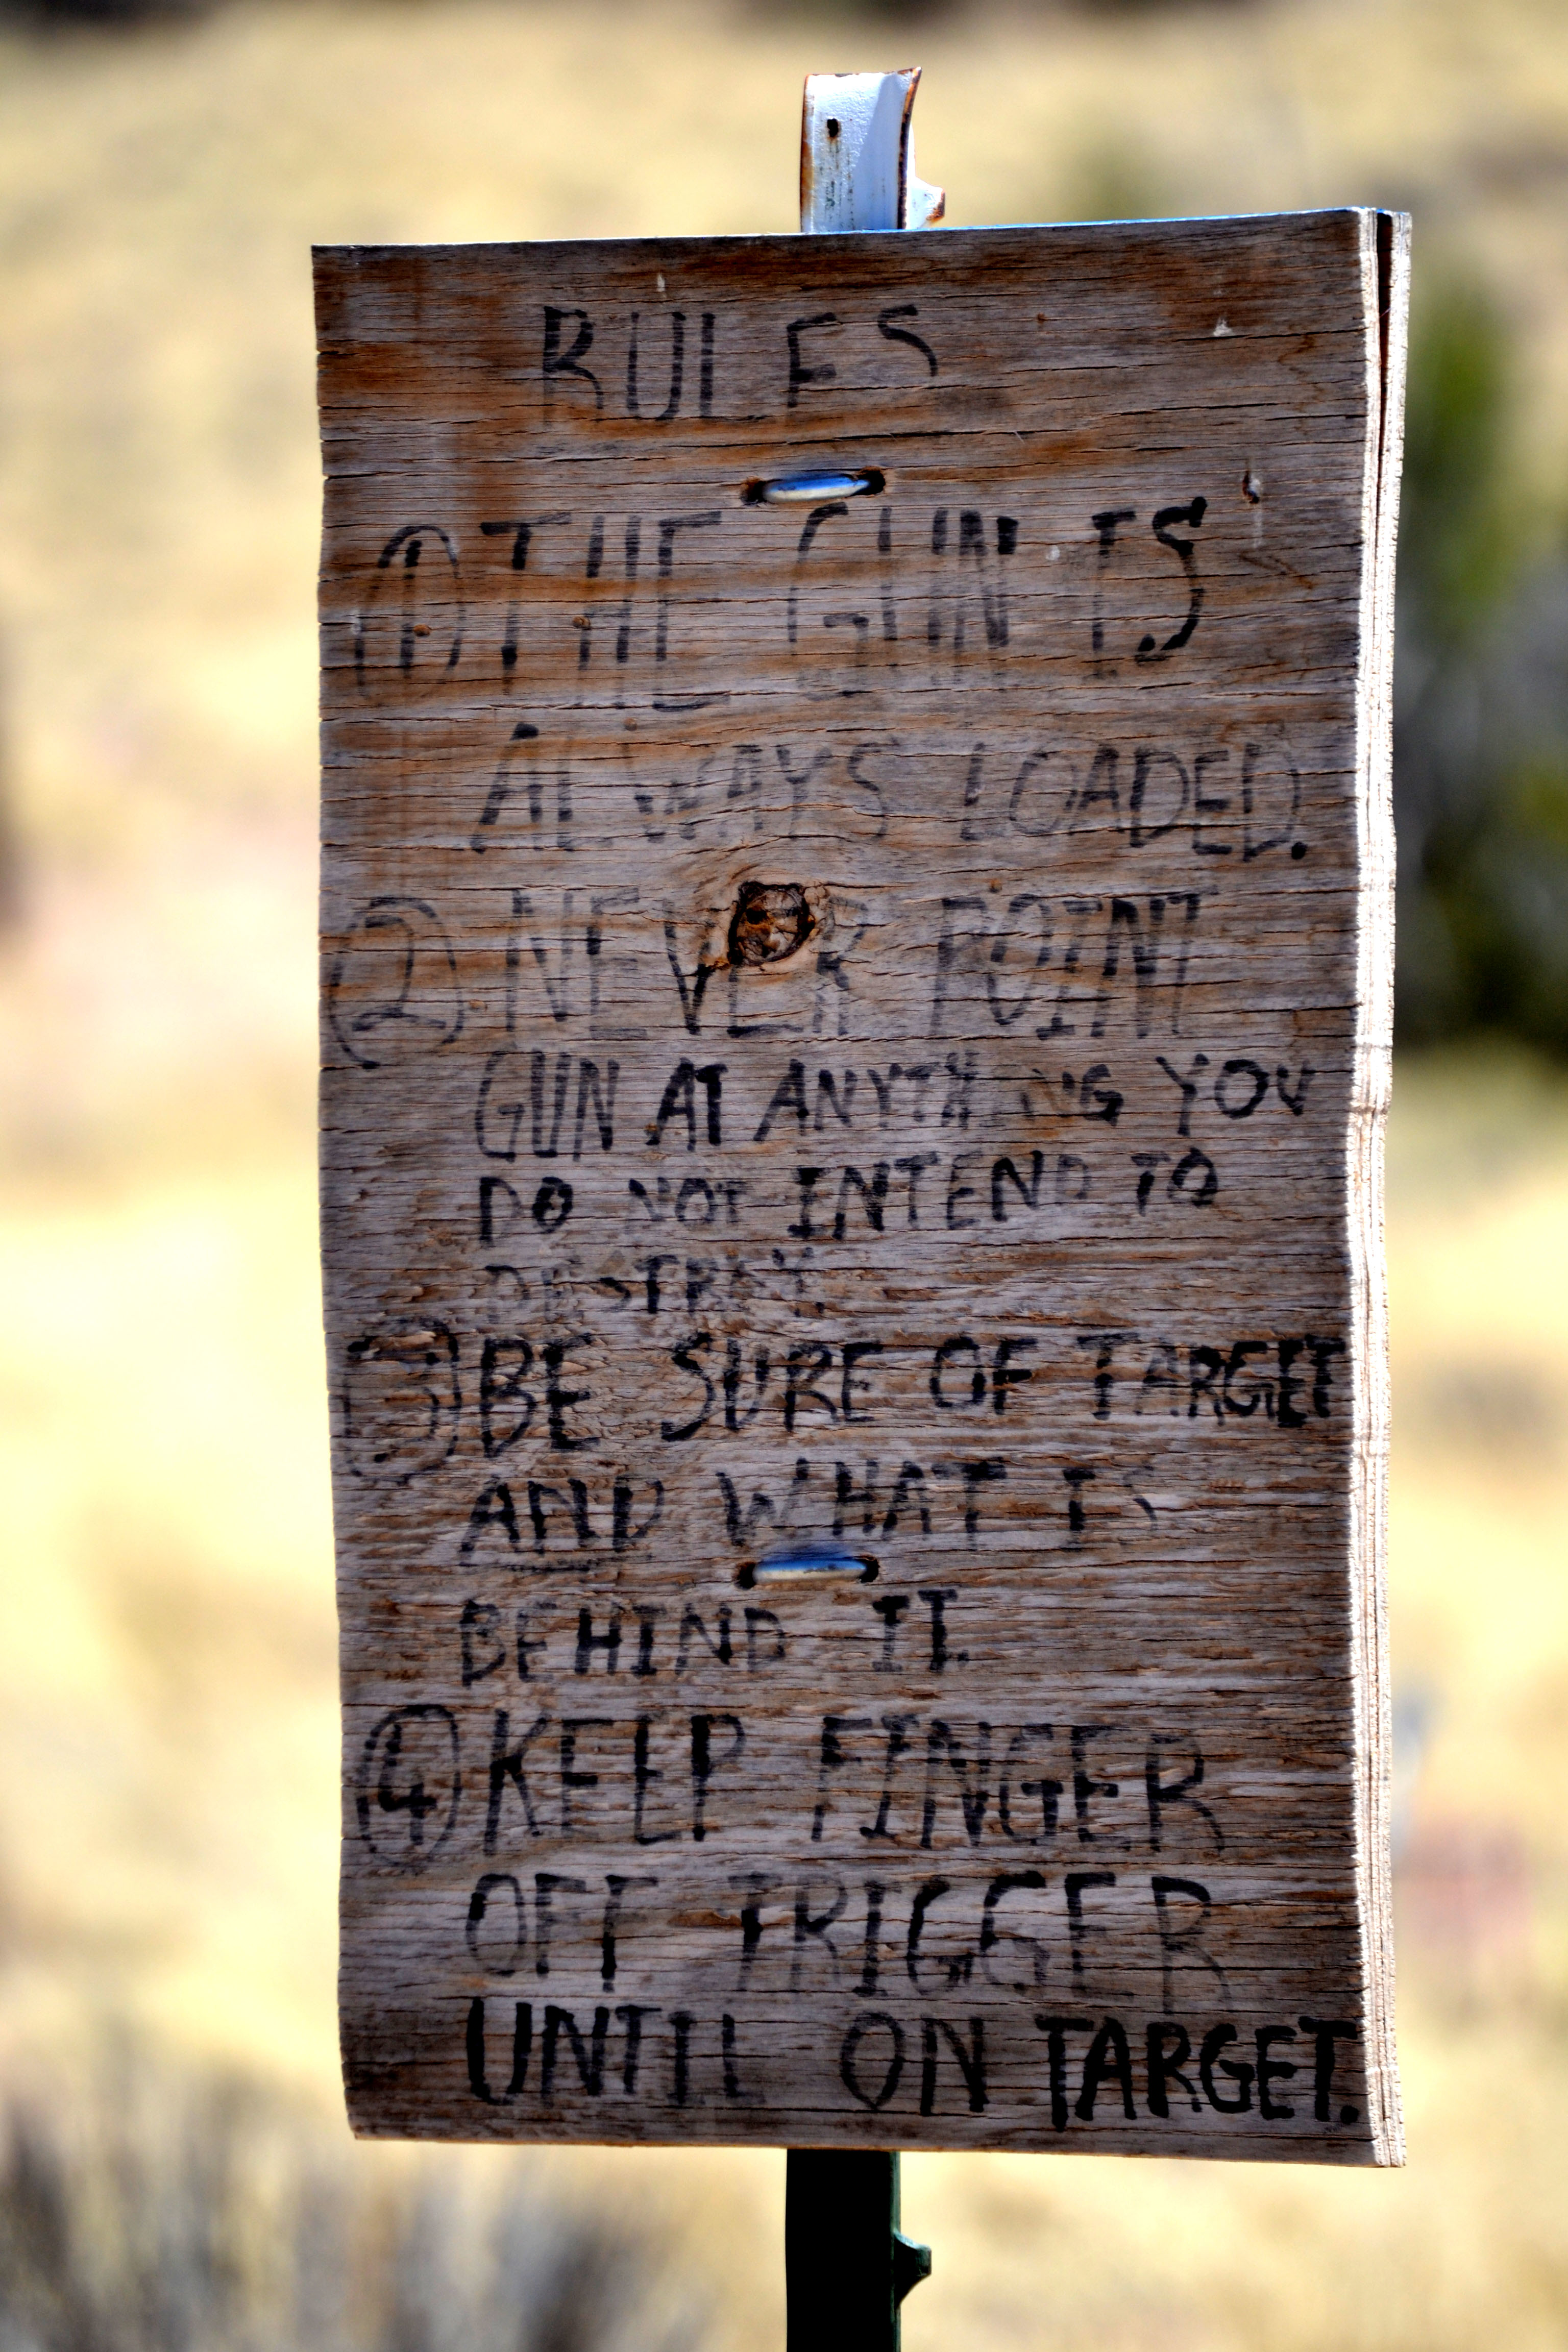 RULES
① THE GUN IS
ALWAYS LOADED.
② NEVER POINT
GUN AT ANYTHING YOU
DO NOT INTEND TO
DESTROY.
③ BE SURE OF TARGET
AND WHAT IS
BEHIND IT.
④ KEEP FINGER
OFF TRIGGER
UNTIL ON TARGET.